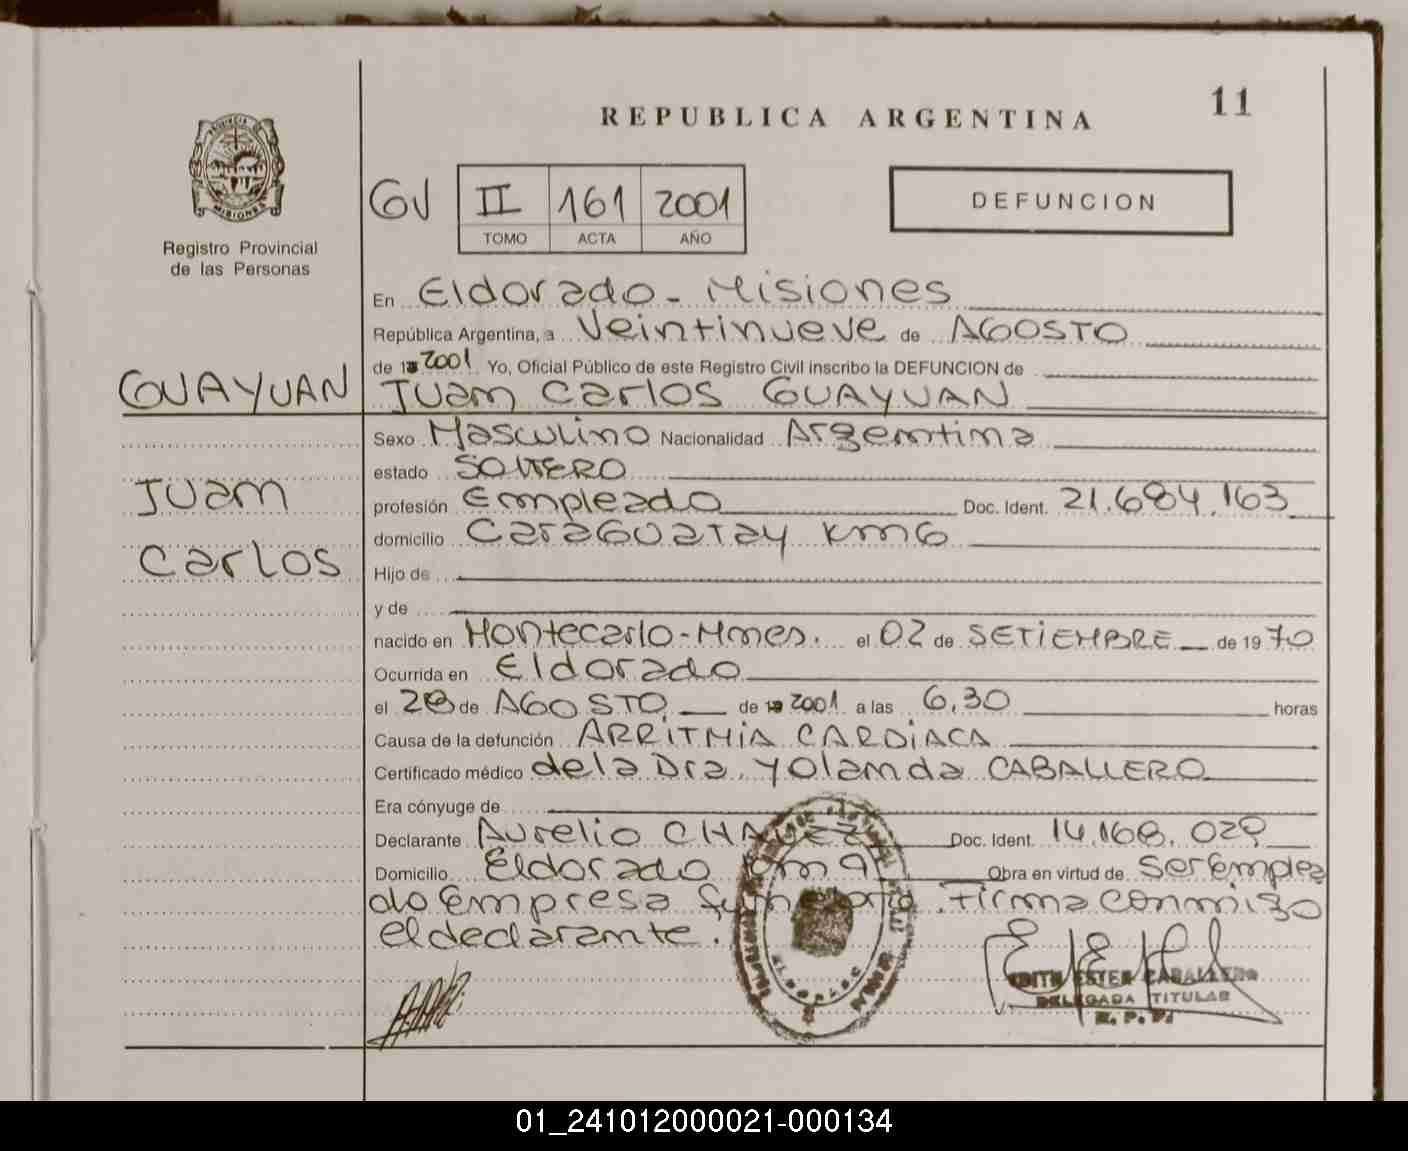 REPUBLICA ARGENTINA
11
PROVINCIA DE
MISIONES
Registro Provincial
de las Personas
GU II 161 2001
TOMO ACTA AÑO
DEFUNCION
En Eldorado - Misiones
República Argentina, a Veintinueve de AGOSTO
de 2001 Yo, Oficial Público de este Registro Civil inscribo la DEFUNCION de
GUAYUAN
Juan Carlos GUAYUAN
Sexo Masculino Nacionalidad Argentina
estado SOLTERO
Juan
profesión Empleado Doc. Ident. 21.684.163
Carlos
domicilio Caraguatay km6
Hijo de
y de
nacido en Montecarlo-Mnes. el 02 de SETIEMBRE de 1970
Ocurrida en Eldorado
el 28 de AGOSTO de 2001 a las 6,30 horas
Causa de la defunción ARRITMIA CARDIACA
Certificado médico de la Dra. Yolanda CABALLERO
Era cónyuge de
Declarante Aurelio CHAVEZ Doc. Ident. 14.168.029
Domicilio Eldorado km 9 Obra en virtud de ser emplea
do Empresa funebre. Firma conmigo
el declarante.
EDITH ESTER CABALLERO
DELEGADA TITULAR
R. P. P.
ELDORADO
01_241012000021-000134